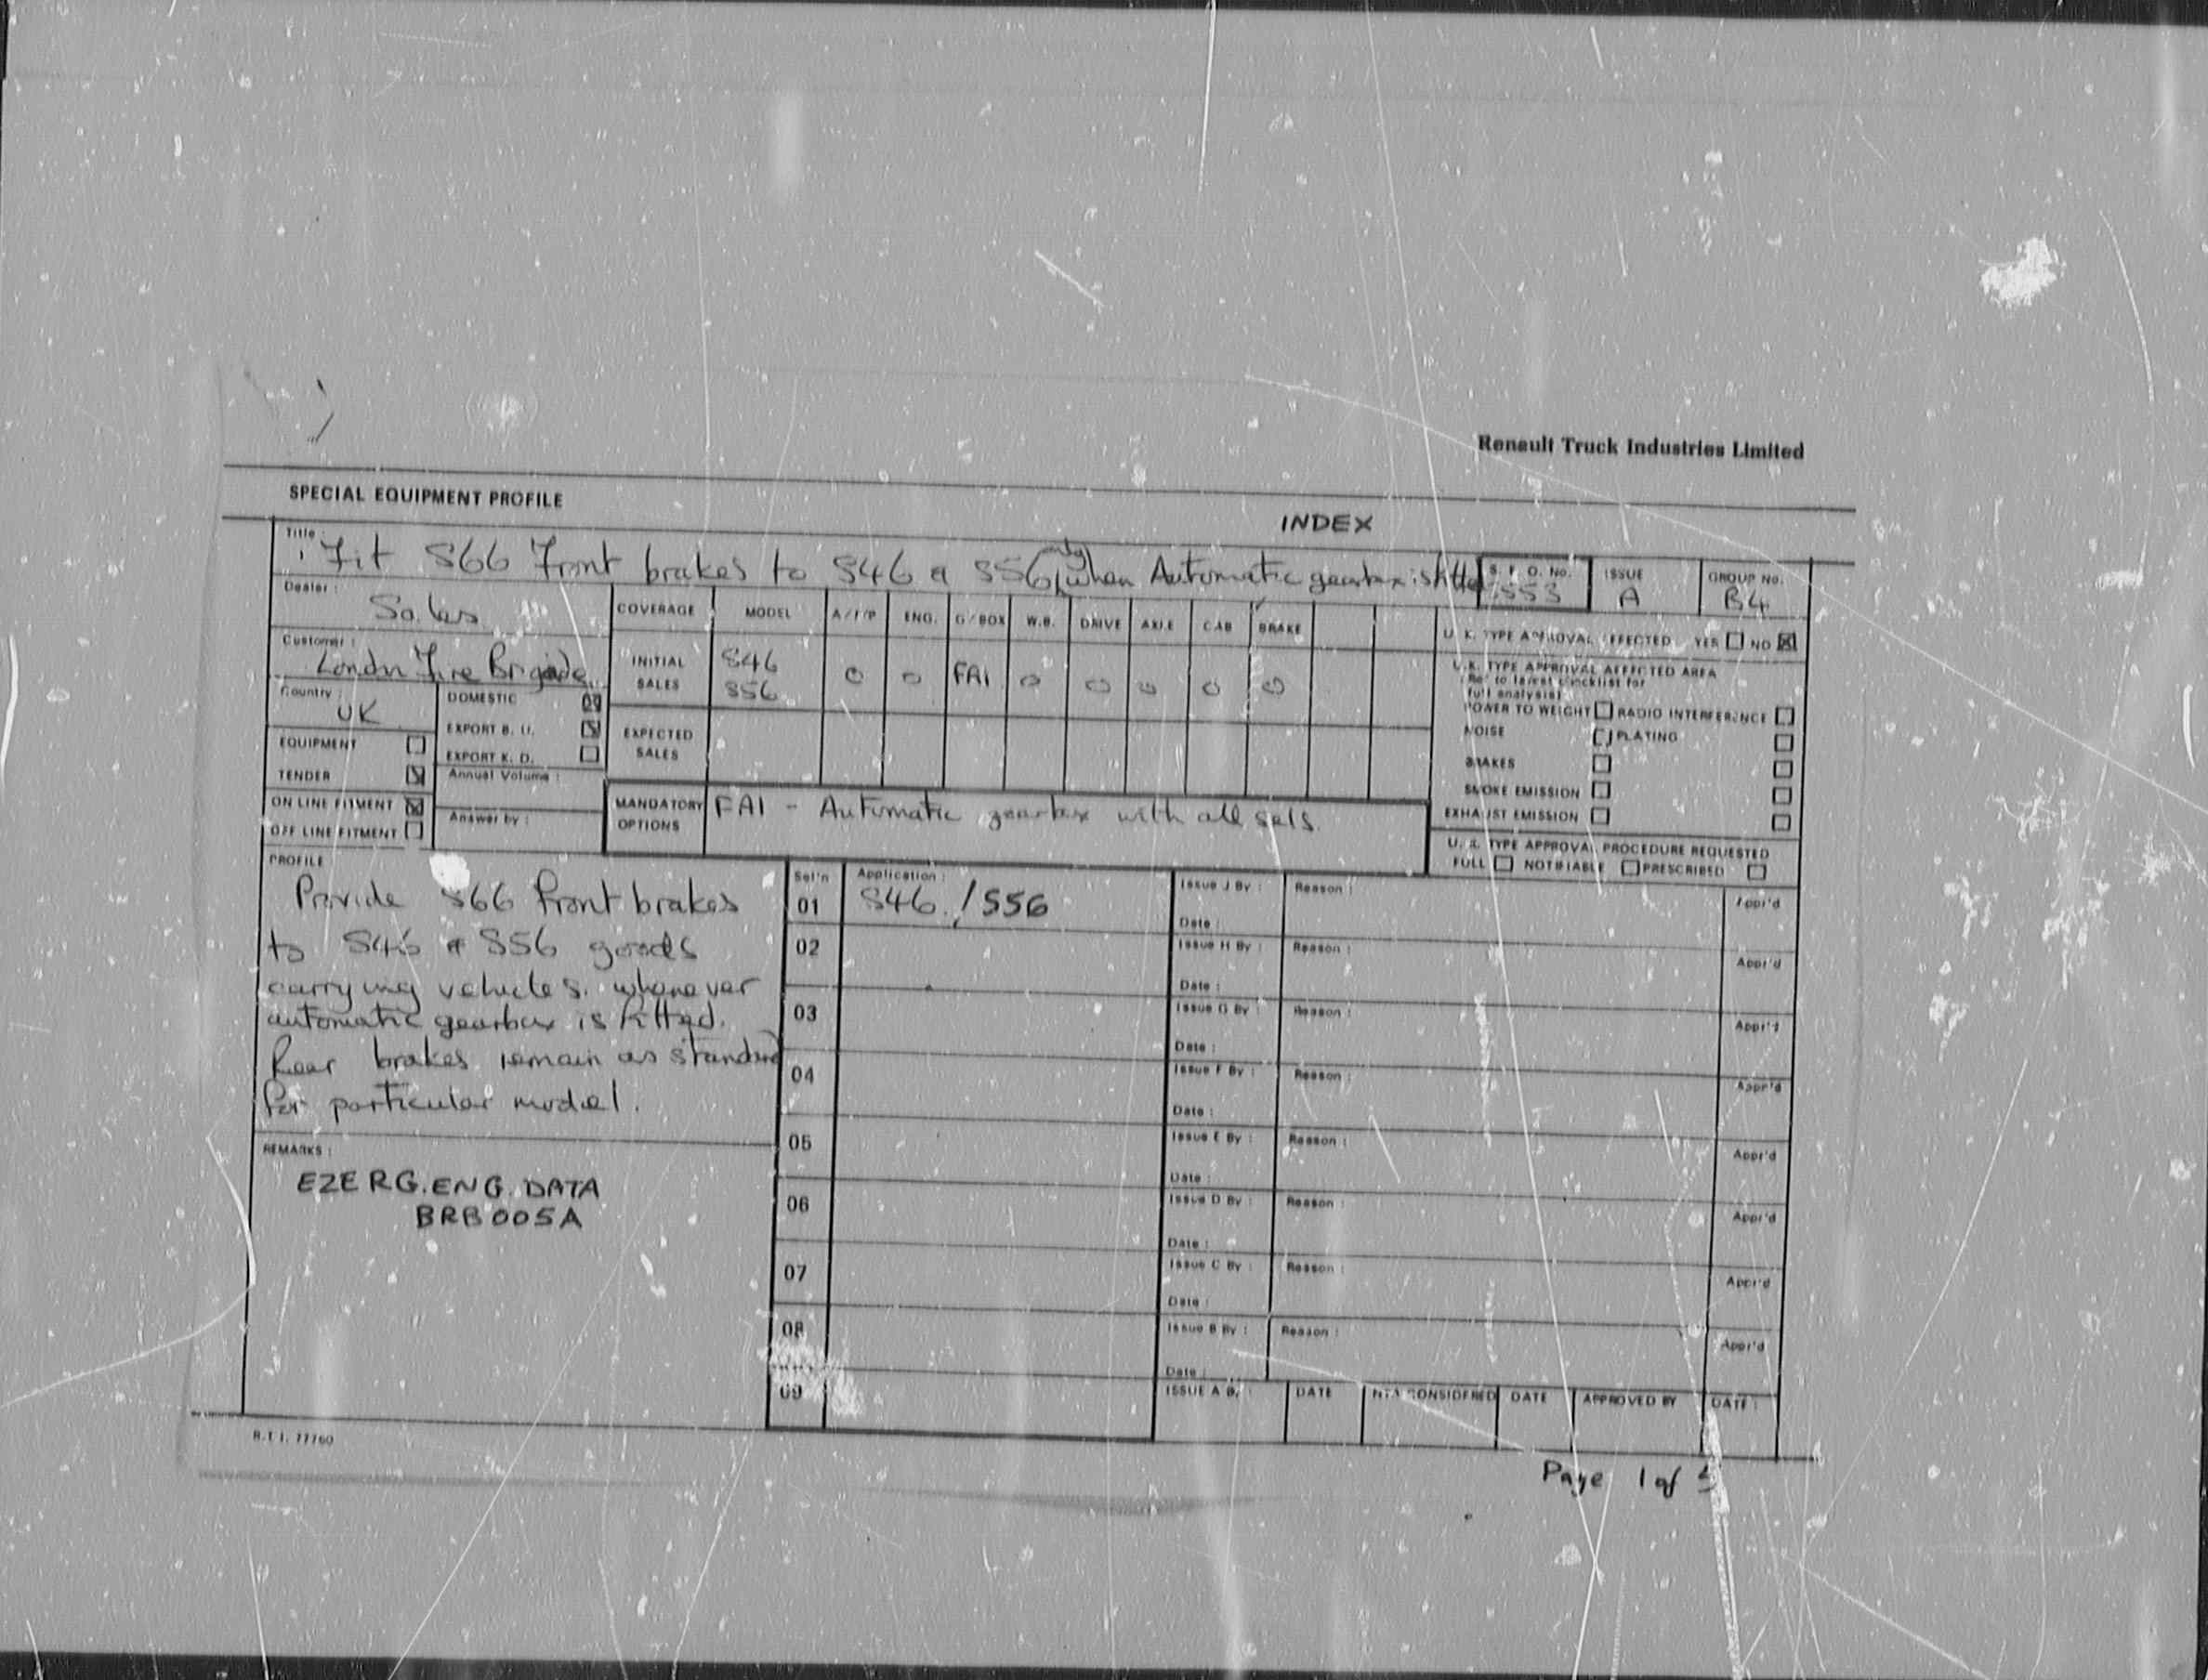 Renault Truck Industries Limited
SPECIAL EQUIPMENT PROFILE
INDEX
Title :
Fit S66 Front brakes to S46 & S56 only when Automatic gearbox is fitted
S. F. O. No.
ISSUE
A
GROUP No.
B4
Dealer :
Sales
Customer :
London Fire Brigade.
Country :
UK
DOMESTIC
EXPORT B. U.
EXPORT K. D.
EQUIPMENT
TENDER
ON LINE FITMENT
OFF LINE FITMENT
Annual Volume :
Answer by :
COVERAGE MODEL A/T/P ENG. G/BOX W.B. DRIVE AXLE CAB BRAKE
INITIAL SALES
S46
S56
O O FA1 O O O O O
EXPECTED SALES
MANDATORY OPTIONS
FA1 - Automatic gearbox with all sels.
U. K. TYPE APPROVAL EFFECTED YES NO
U.K. TYPE APPROVAL AFFECTED AREA
(Ref to latest checklist for
full analysis)
POWER TO WEIGHT RADIO INTERFERENCE
NOISE PLATING
BRAKES
SMOKE EMISSION
EXHAUST EMISSION
U. K. TYPE APPROVAL PROCEDURE REQUESTED
FULL NOTIFIABLE PRESCRIBED
PROFILE
Provide S66 front brakes
to S46 & S56 goods
carrying vehicles. whenever
automatic gearbox is fitted.
Rear brakes remain as standard
for particular model.
REMARKS :
EZERG.ENG.DATA
BRB005A
Sel'n Application :
01 S46. / S56
02
03
04
05
06
07
08
09
Issue J By : Reason : Appr'd
Date :
Issue H By : Reason : Appr'd
Date :
Issue G By : Reason : Appr'd
Date :
Issue F By : Reason : Appr'd
Date :
Issue E By : Reason : Appr'd
Date :
Issue D By : Reason : Appr'd
Date :
Issue C By : Reason : Appr'd
Date :
Issue B By : Reason : Appr'd
Date :
ISSUE A By : DATE CONSIDERED DATE APPROVED BY DATE :
R.T.I. 77760
Page 1 of